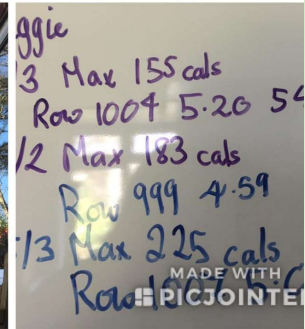 ggie
/3 Max 155 cals
Row 1004 5.20 54
/2 Max 183 cals
Row 999 4.59
/3 Max 225 cals
Row 1007
MADE WITH
PICJOINTE